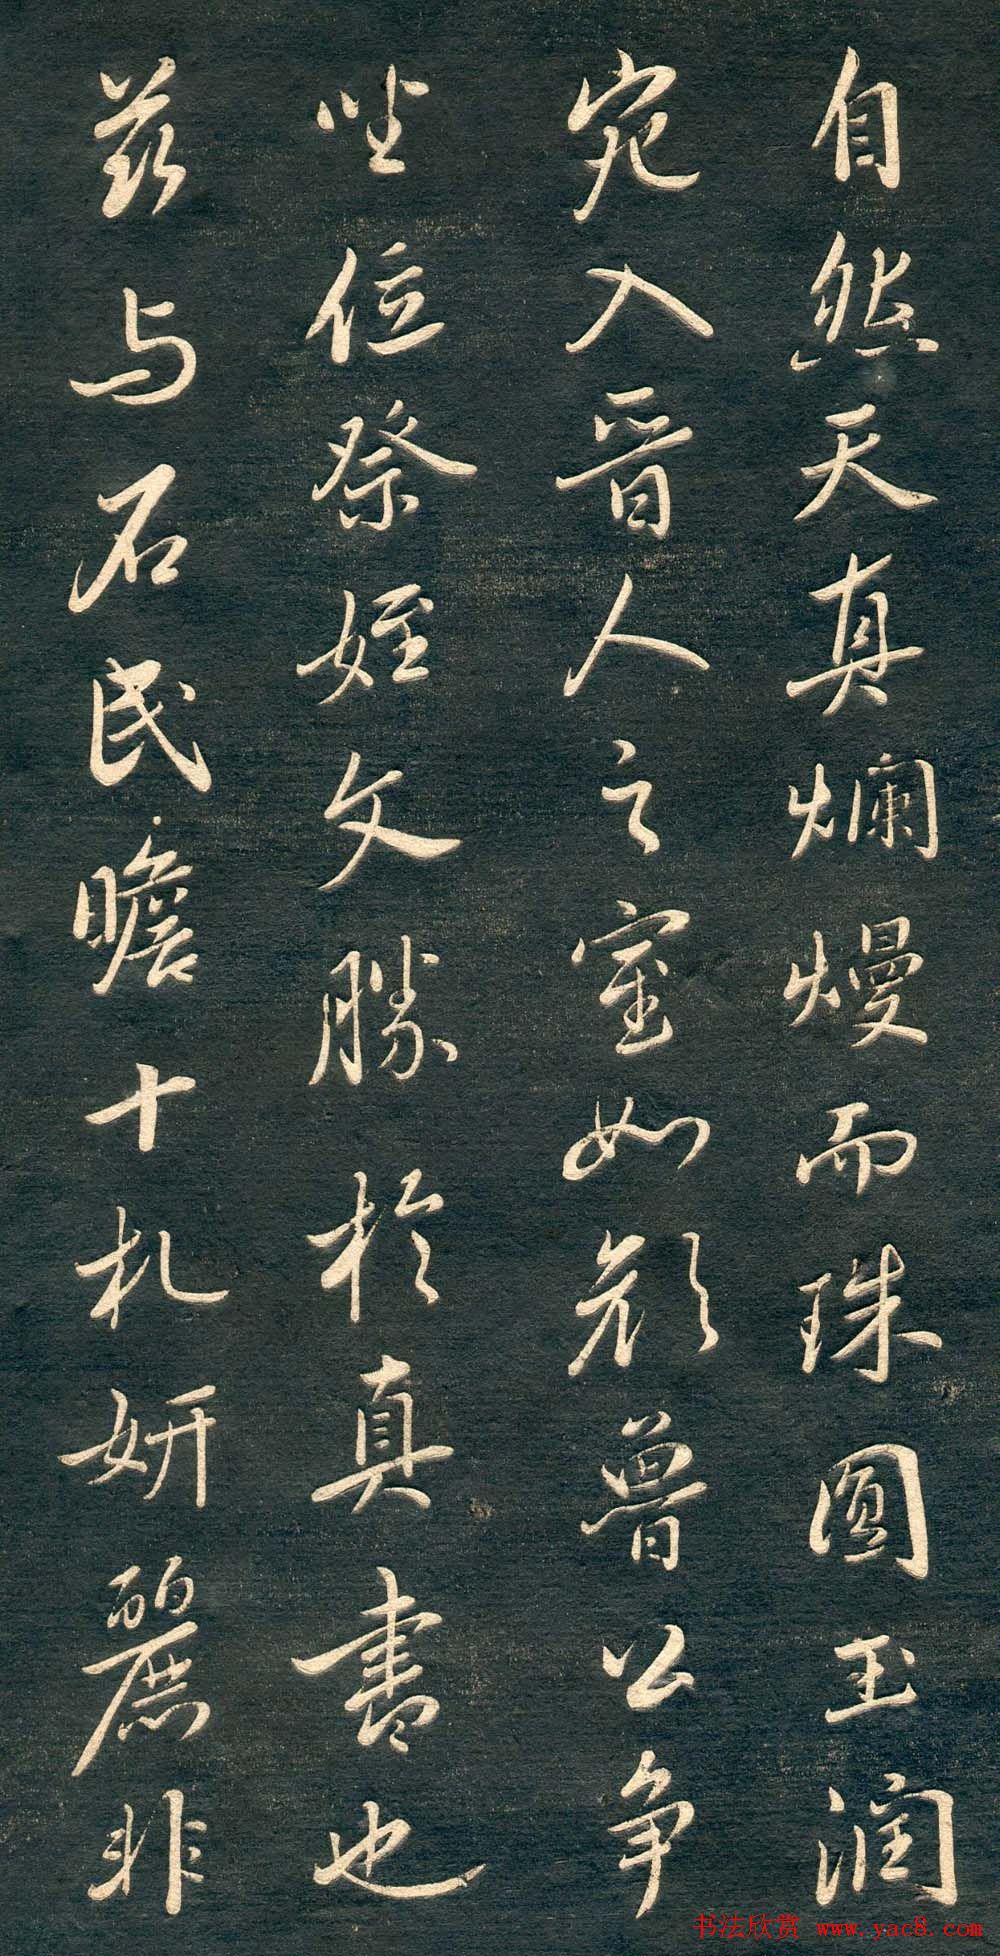 自然天真爛熳而珠圓玉潤
宛入晋人之室如顔魯公争
坐位祭姪文勝於真書也
兹与石民瞻十札妍麗非
书法欣赏 www.yac8.com